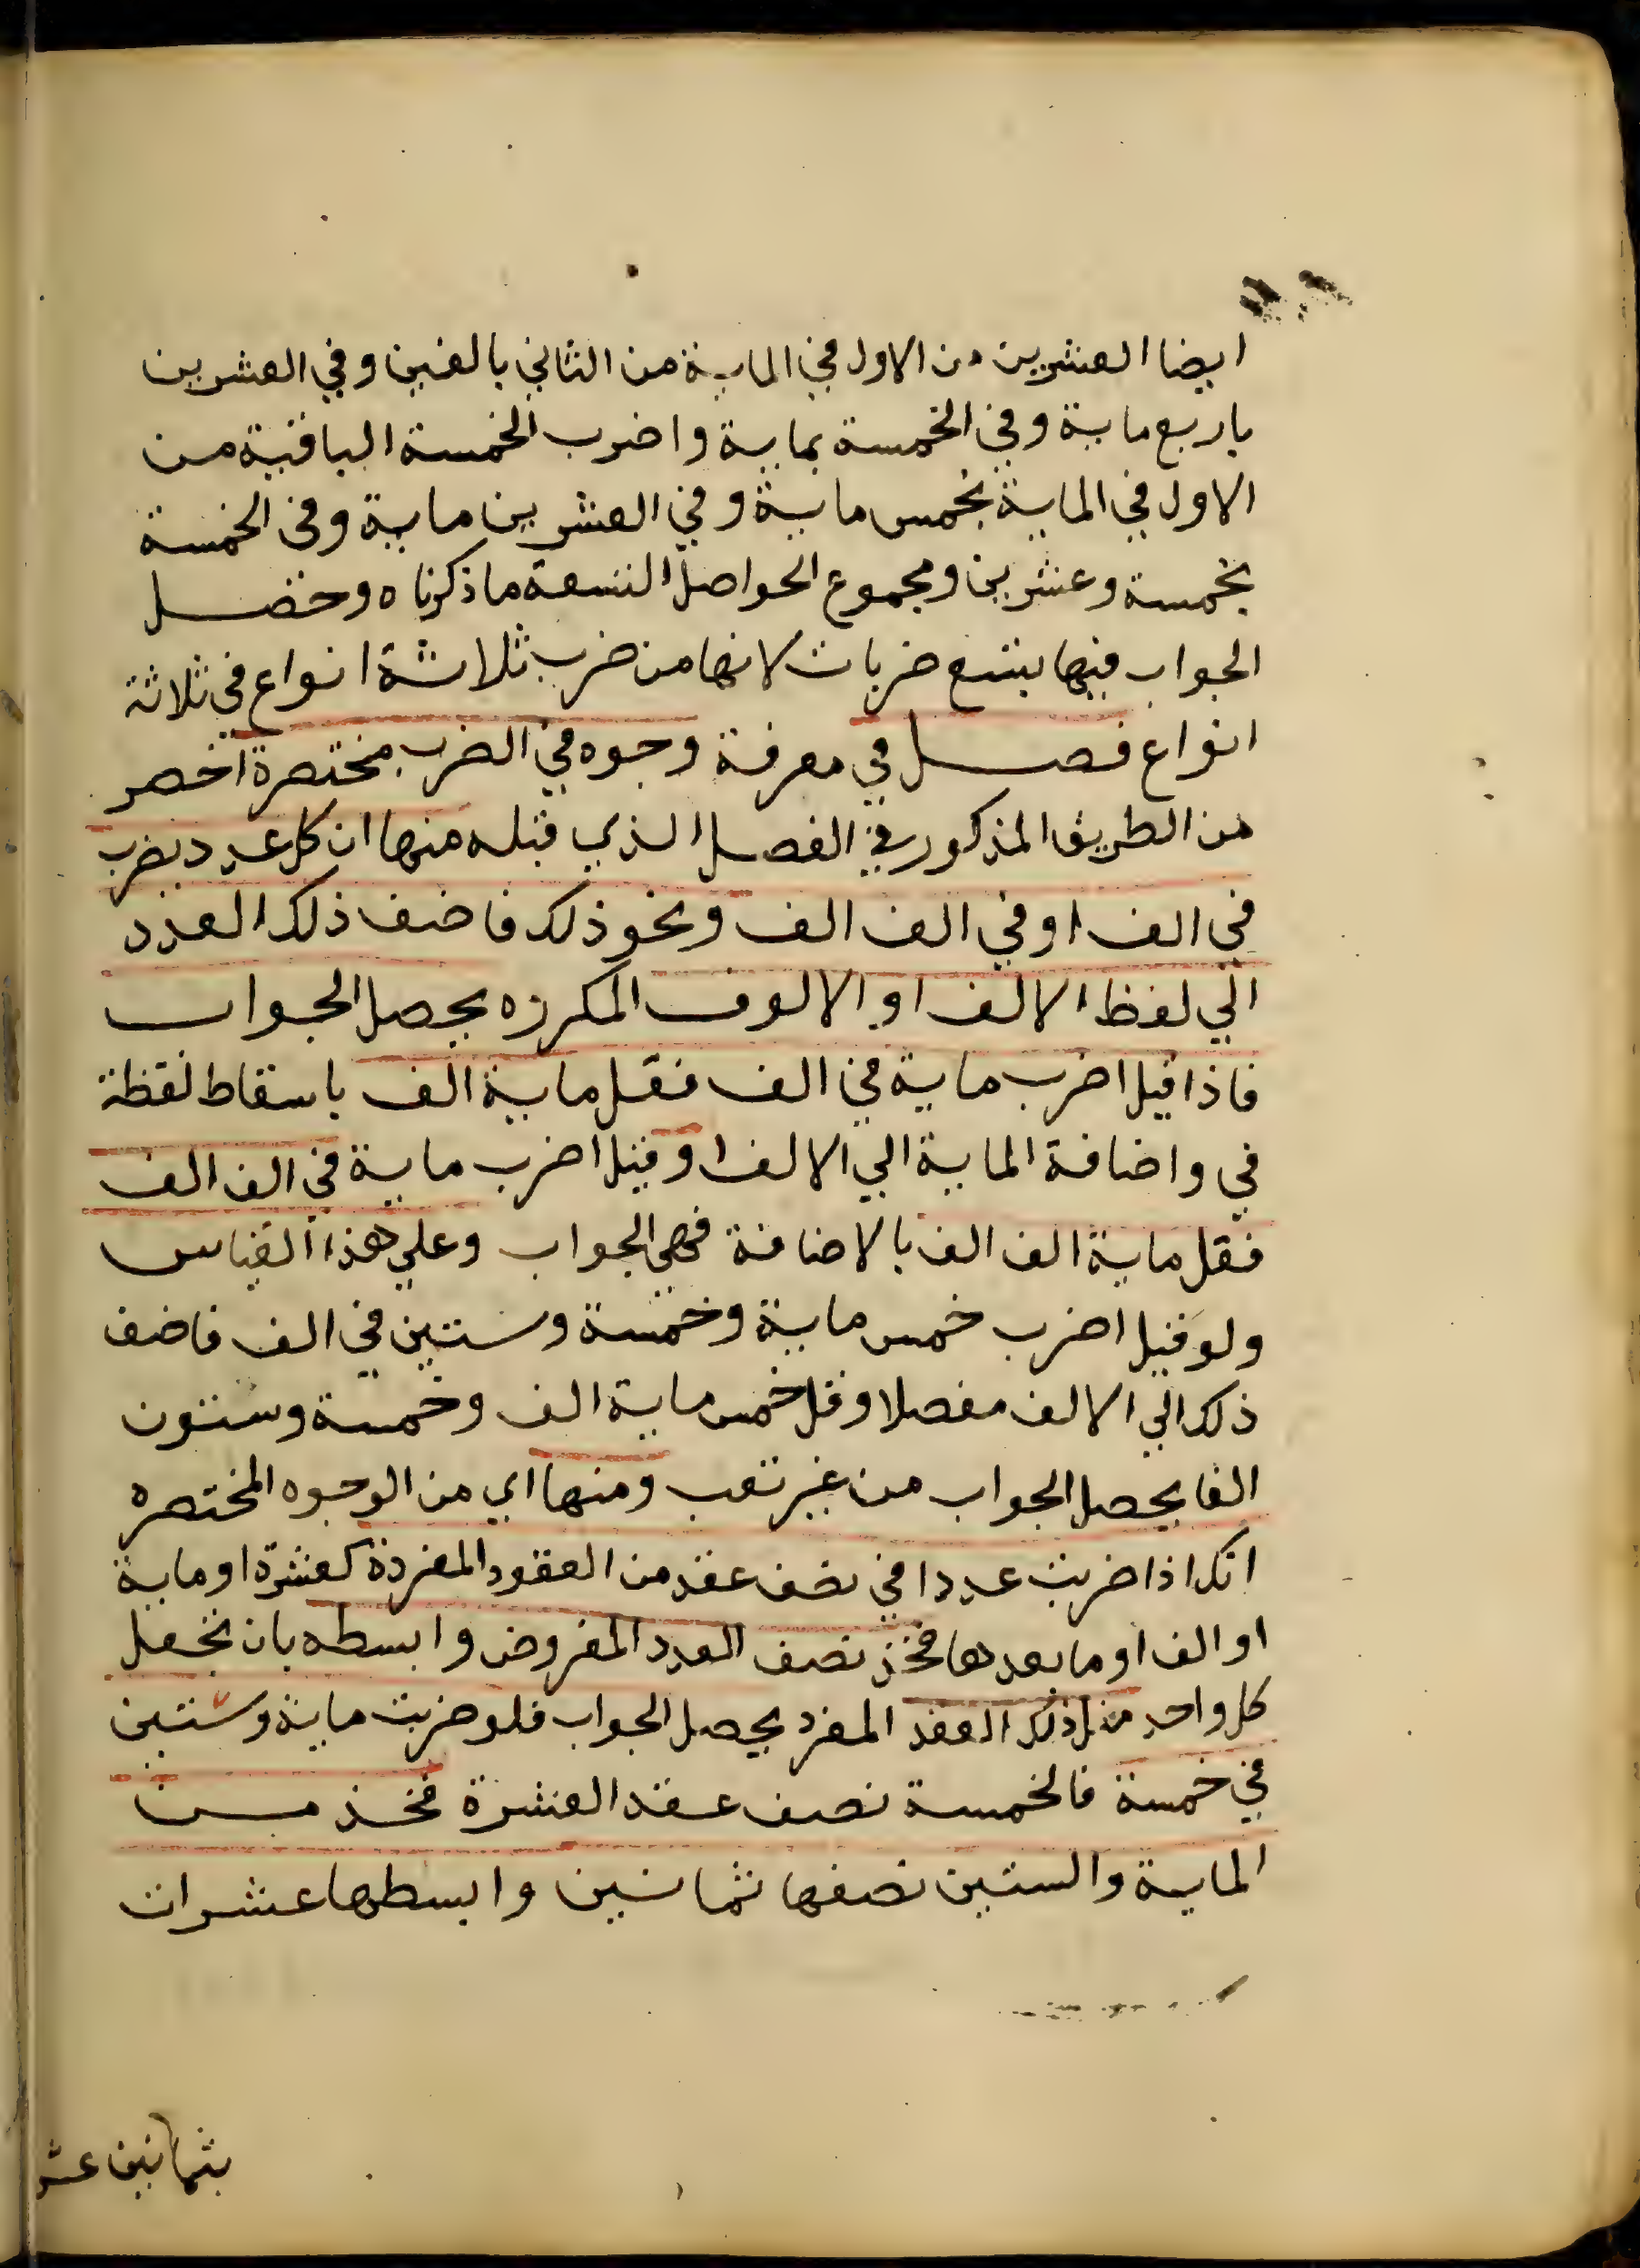 ايضا العشرين من الاول في الماية من الثاني بالفين وفي العشرين
باربع ماية وفي الخمسة بماية واضرب الخمسة الباقية من
الاول في الماية بخمس ماية وفي العشرين ماية وفي الخمسة
بخمسة وعشرين ومجموع الحواصل التسعة ما ذكرناه وحصل
الجواب فيها بتسع ضربات لانها من ضرب ثلاثة انواع في ثلاثة
انواع فصل في معرفة وجوه في الضرب مختصرة اخصر
من الطريق المذكور في الفصل الذي قبله منها ان كل عدد يضرب
في الف او في الف الف ونحو ذلك فاضف ذلك العدد
الي لفظ الالف او الالوف المكرره يحصل الجواب
فاذا قيل اضرب ماية في الف فقل ماية الف باسقاط لفظة
في واضافة الماية الي الالف او قيل اضرب ماية في الف الف
فقل ماية الف الف بالاضافة فهي الجواب وعلي هذا القياس
ولو قيل اضرب خمس ماية وخمسة وستين في الف فاضف
ذلك الي الالف مفصلا وقل خمس ماية الف وخمسة وستون
الفا يحصل الجواب من غير تعب ومنها اي من الوجوه المختصره
انك اذا ضربت عددا في نصف عقد من العقود المفردة كعشرة او ماية
او الف او ما بعدها فخذ نصف العدد المفروض وابسطه بان تجعل
كل واحد مثل ذلك العقد المفرد يحصل الجواب فلو ضربت ماية وستين
في خمسة فالخمسة نصف عقد العشرة فخذ من
الماية والستين نصفها ثمانين وابسطها عشرات
بثمانين